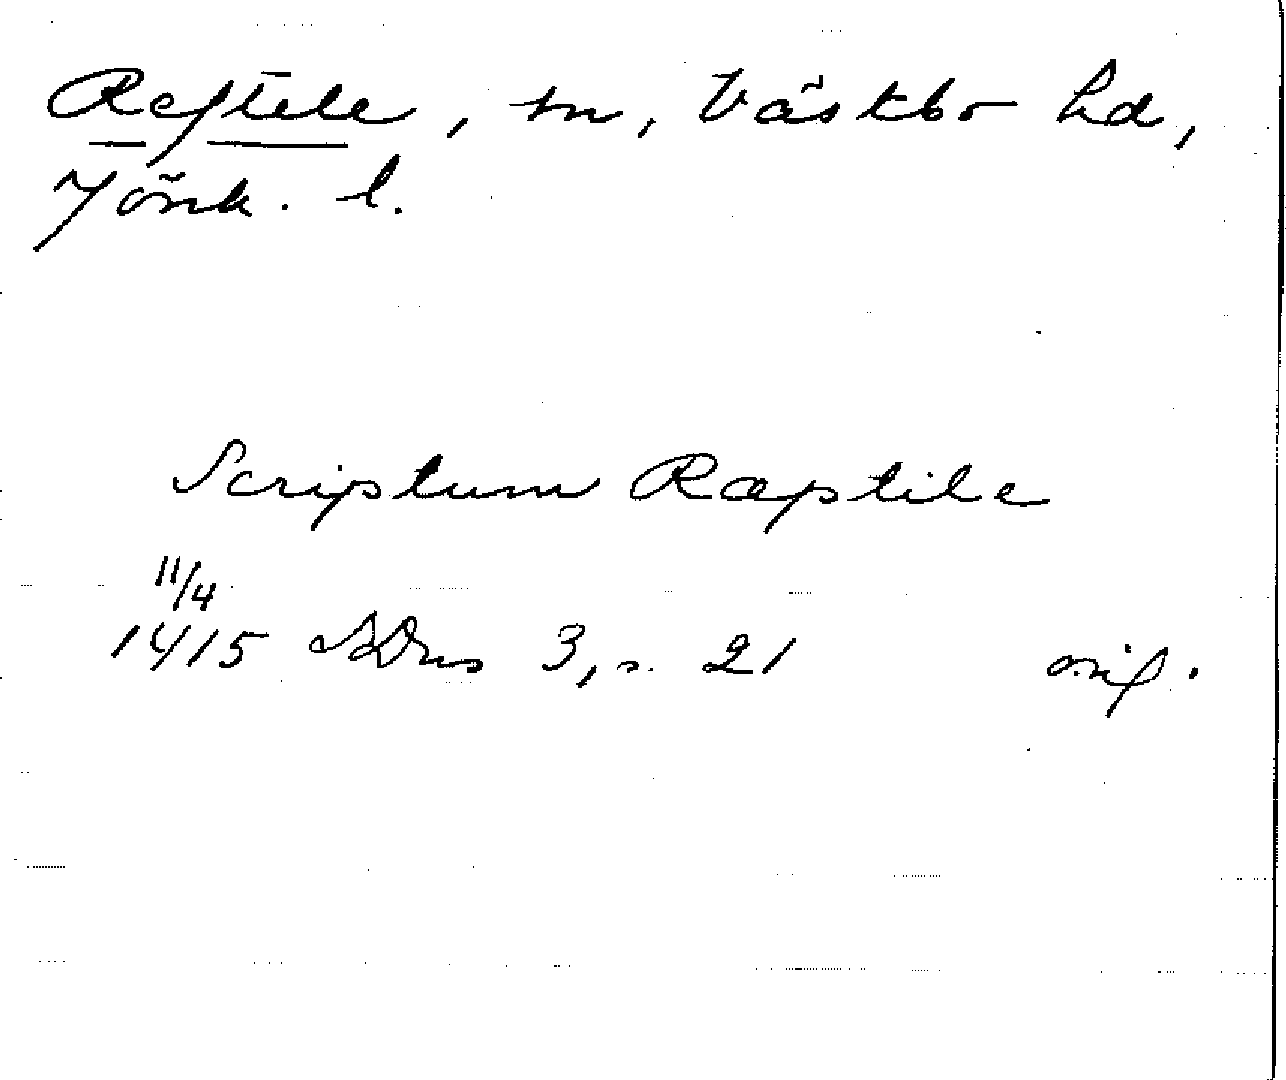 Reftele, sn, Västbo hd,
Jönk. l.
Scriptum Ræptile
11/4
1415 SDns 3, s. 21 orig.